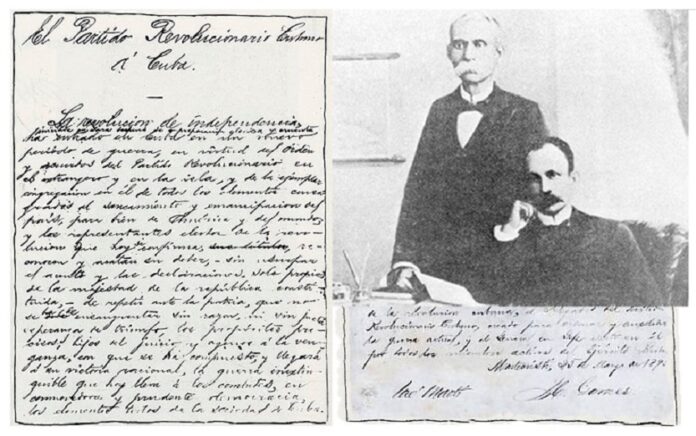 El Partido Revolucionario Cubano
á Cuba.
La revolucion de independencia,
ha entrado en Cuba en un nuevo
periodo de guerra, en virtud del orden
y acuerdos del Partido Revolucionario en
el extranjero y en la isla, y de la ejemplar
congregacion en él de todos los elementos consa-
grados al saneamiento y emancipacion del
país, para bien de América y del mundo,
y los representantes electos de la revo-
lucion que hoy se confirma, reco-
nocen y acatan su deber, - sin usurpar
el acento y las declaraciones solo propias
de la majestad de la república consti-
tuida, - de repetir ante la patria, que no
se ensangrentar sin razon, ni sin justa
esperanza de triunfo, los propósitos pre-
cisos, hijos del juicio y agenos á la ven-
ganza, con que se ha compuesto, y llegará
á su victoria racional, la guerra inextin-
guible que hoy lleva á los combates, en
conmovedora y prudente democracia,
los elementos todos de la sociedad de Cuba.
de la revolucion cubana, el Delegado del Partido
Revolucionario Cubano, creado para ordenar y auxiliar
la guerra actual, y el General en Jefe en él
por todos los miembros activos del Ejército Libertador
Montecristi, 25 de Marzo de 1895
José Martí M. Gomez